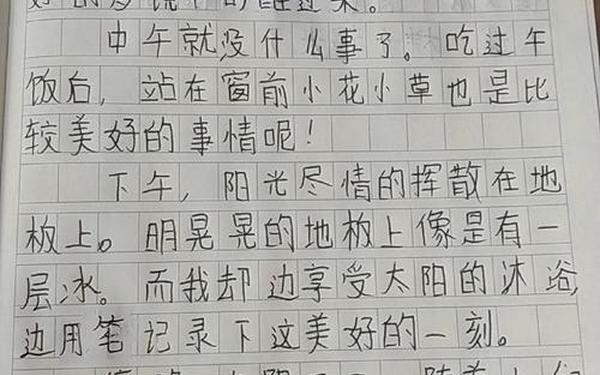 中午就没什么事了。吃过午
饭后,站在窗前小花小草也是比
较美好的事情呢!
下午,阳光尽情的挥散在地
板上。明晃晃的地板上像是有一
层冰。而我却边享受太阳的沐浴,
边用笔记录下这美好的一刻。